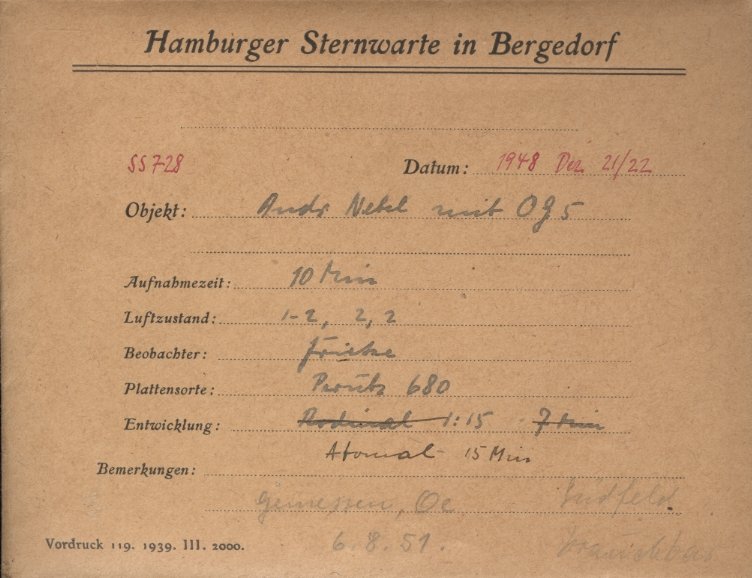 Hamburger Sternwarte in Bergedorf
SS728 Datum: 1948 Dez 21/22
Objekt: Andr Nebel mit OG5
Aufnahmezeit: 10 Min
Luftzustand: 1-2, 2, 2
Beobachter: Fricke
Plattensorte: Perutz 680
Entwicklung: Rodinal 1:15 7 Min
Atomal 15 Min
Bemerkungen:
gemessen,
6.8.51.
Vordruck 119. 1939. III. 2000.